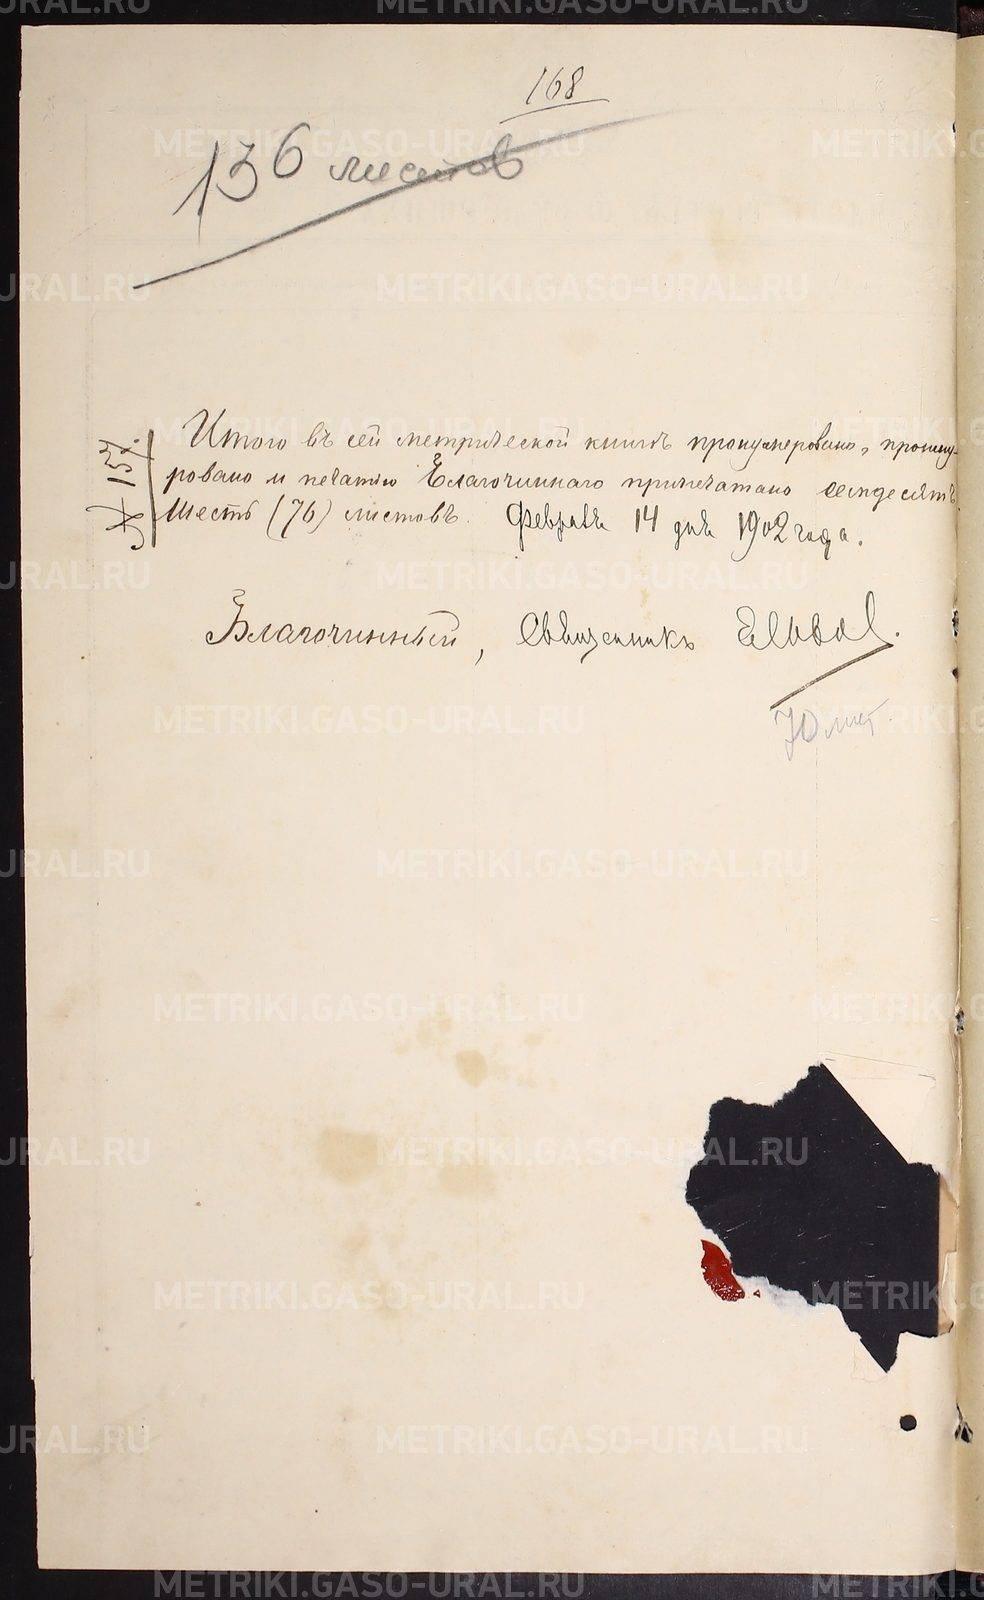 168
136 листов
№ 157.
Итого въ сей метрической книгѣ пронумеровано, прошну-
ровано и печатью Благочиннаго припечатано семьдесятъ
шесть (76) листовъ. Февраля 14 дня 1902 года.
Благочинный, Священникъ
70 лист.
METRIKI.GASO-URAL.RU